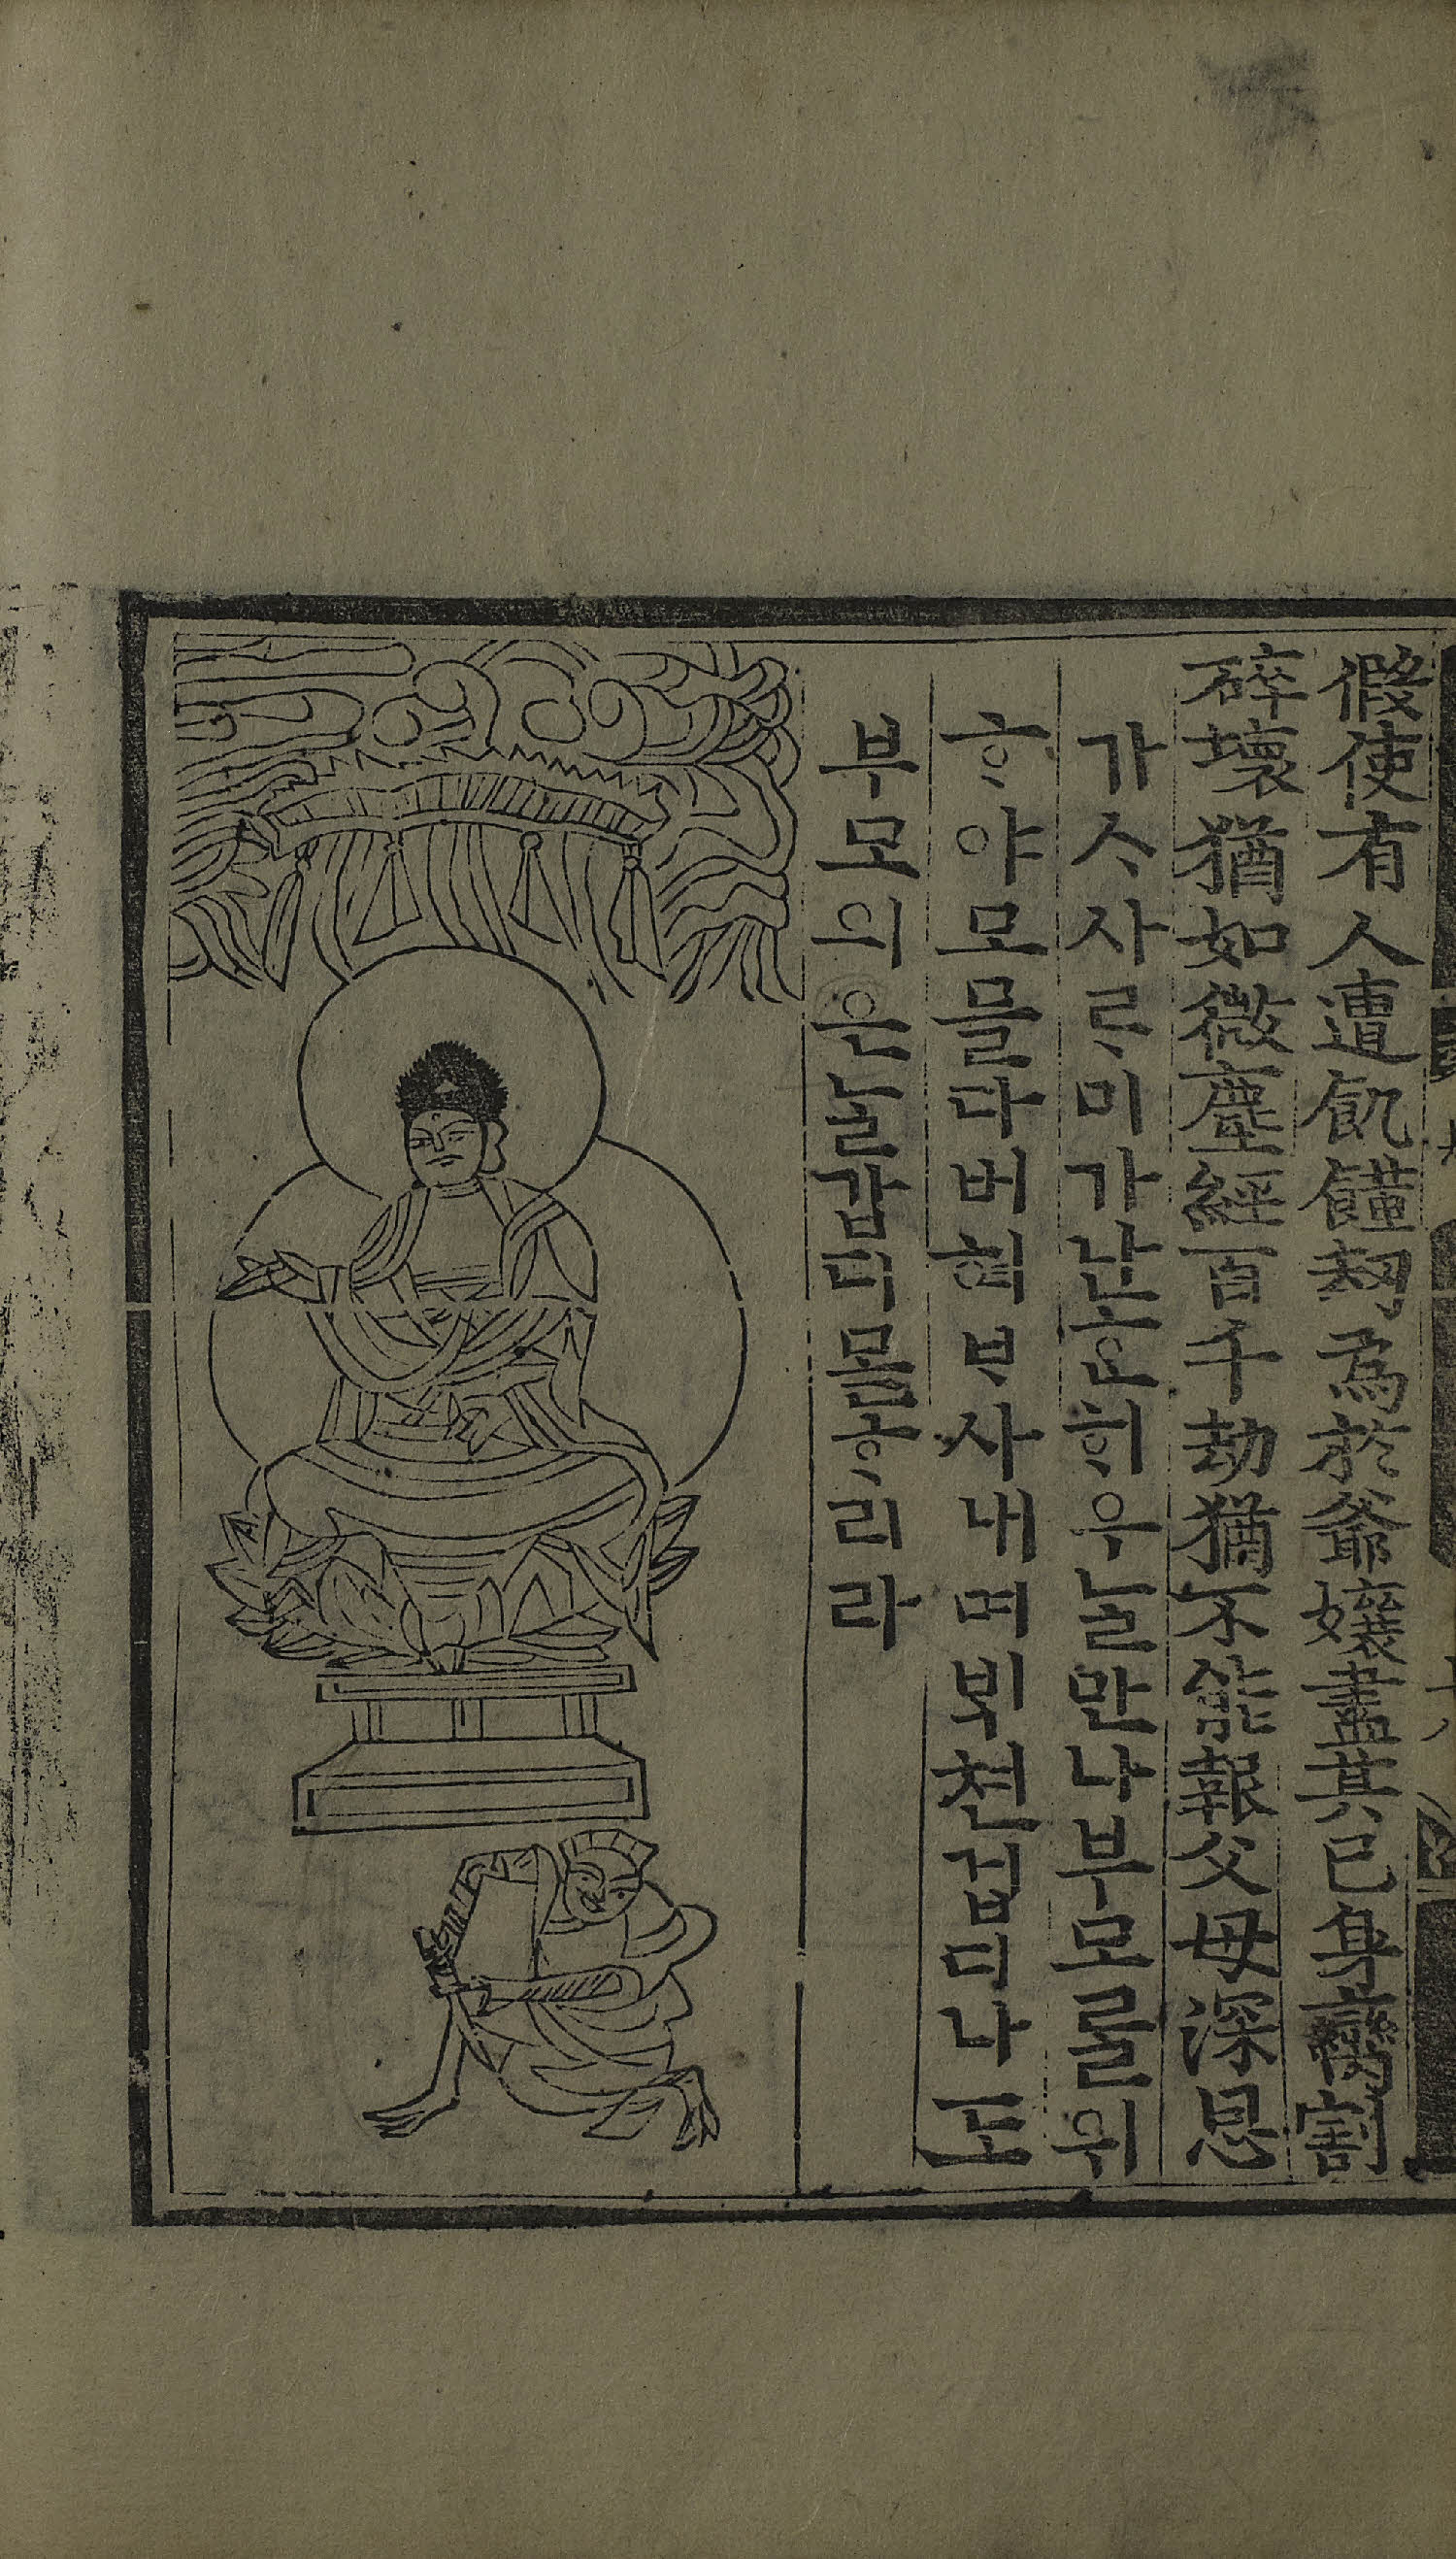 假使有人遭飢饉劫為於爺孃盡其己身臠割
碎壞猶如微塵經百千劫猶不能報父母深恩
가ᄉᆞ사ᄅᆞ미가난ᄒᆞᆫᄒᆡ우늘만나부모를위
ᄒᆞ야모믈다버혀ᄇᆞ사내며ᄇᆡᆨ쳔겁디나도
부모의은늘갑디몯ᄒᆞ리라
十八